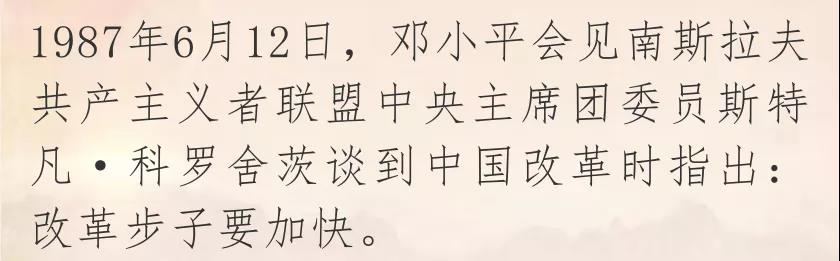 1987年6月12日，邓小平会见南斯拉夫
共产主义者联盟中央主席团委员斯特
凡·科罗舍茨谈到中国改革时指出：
改革步子要加快。